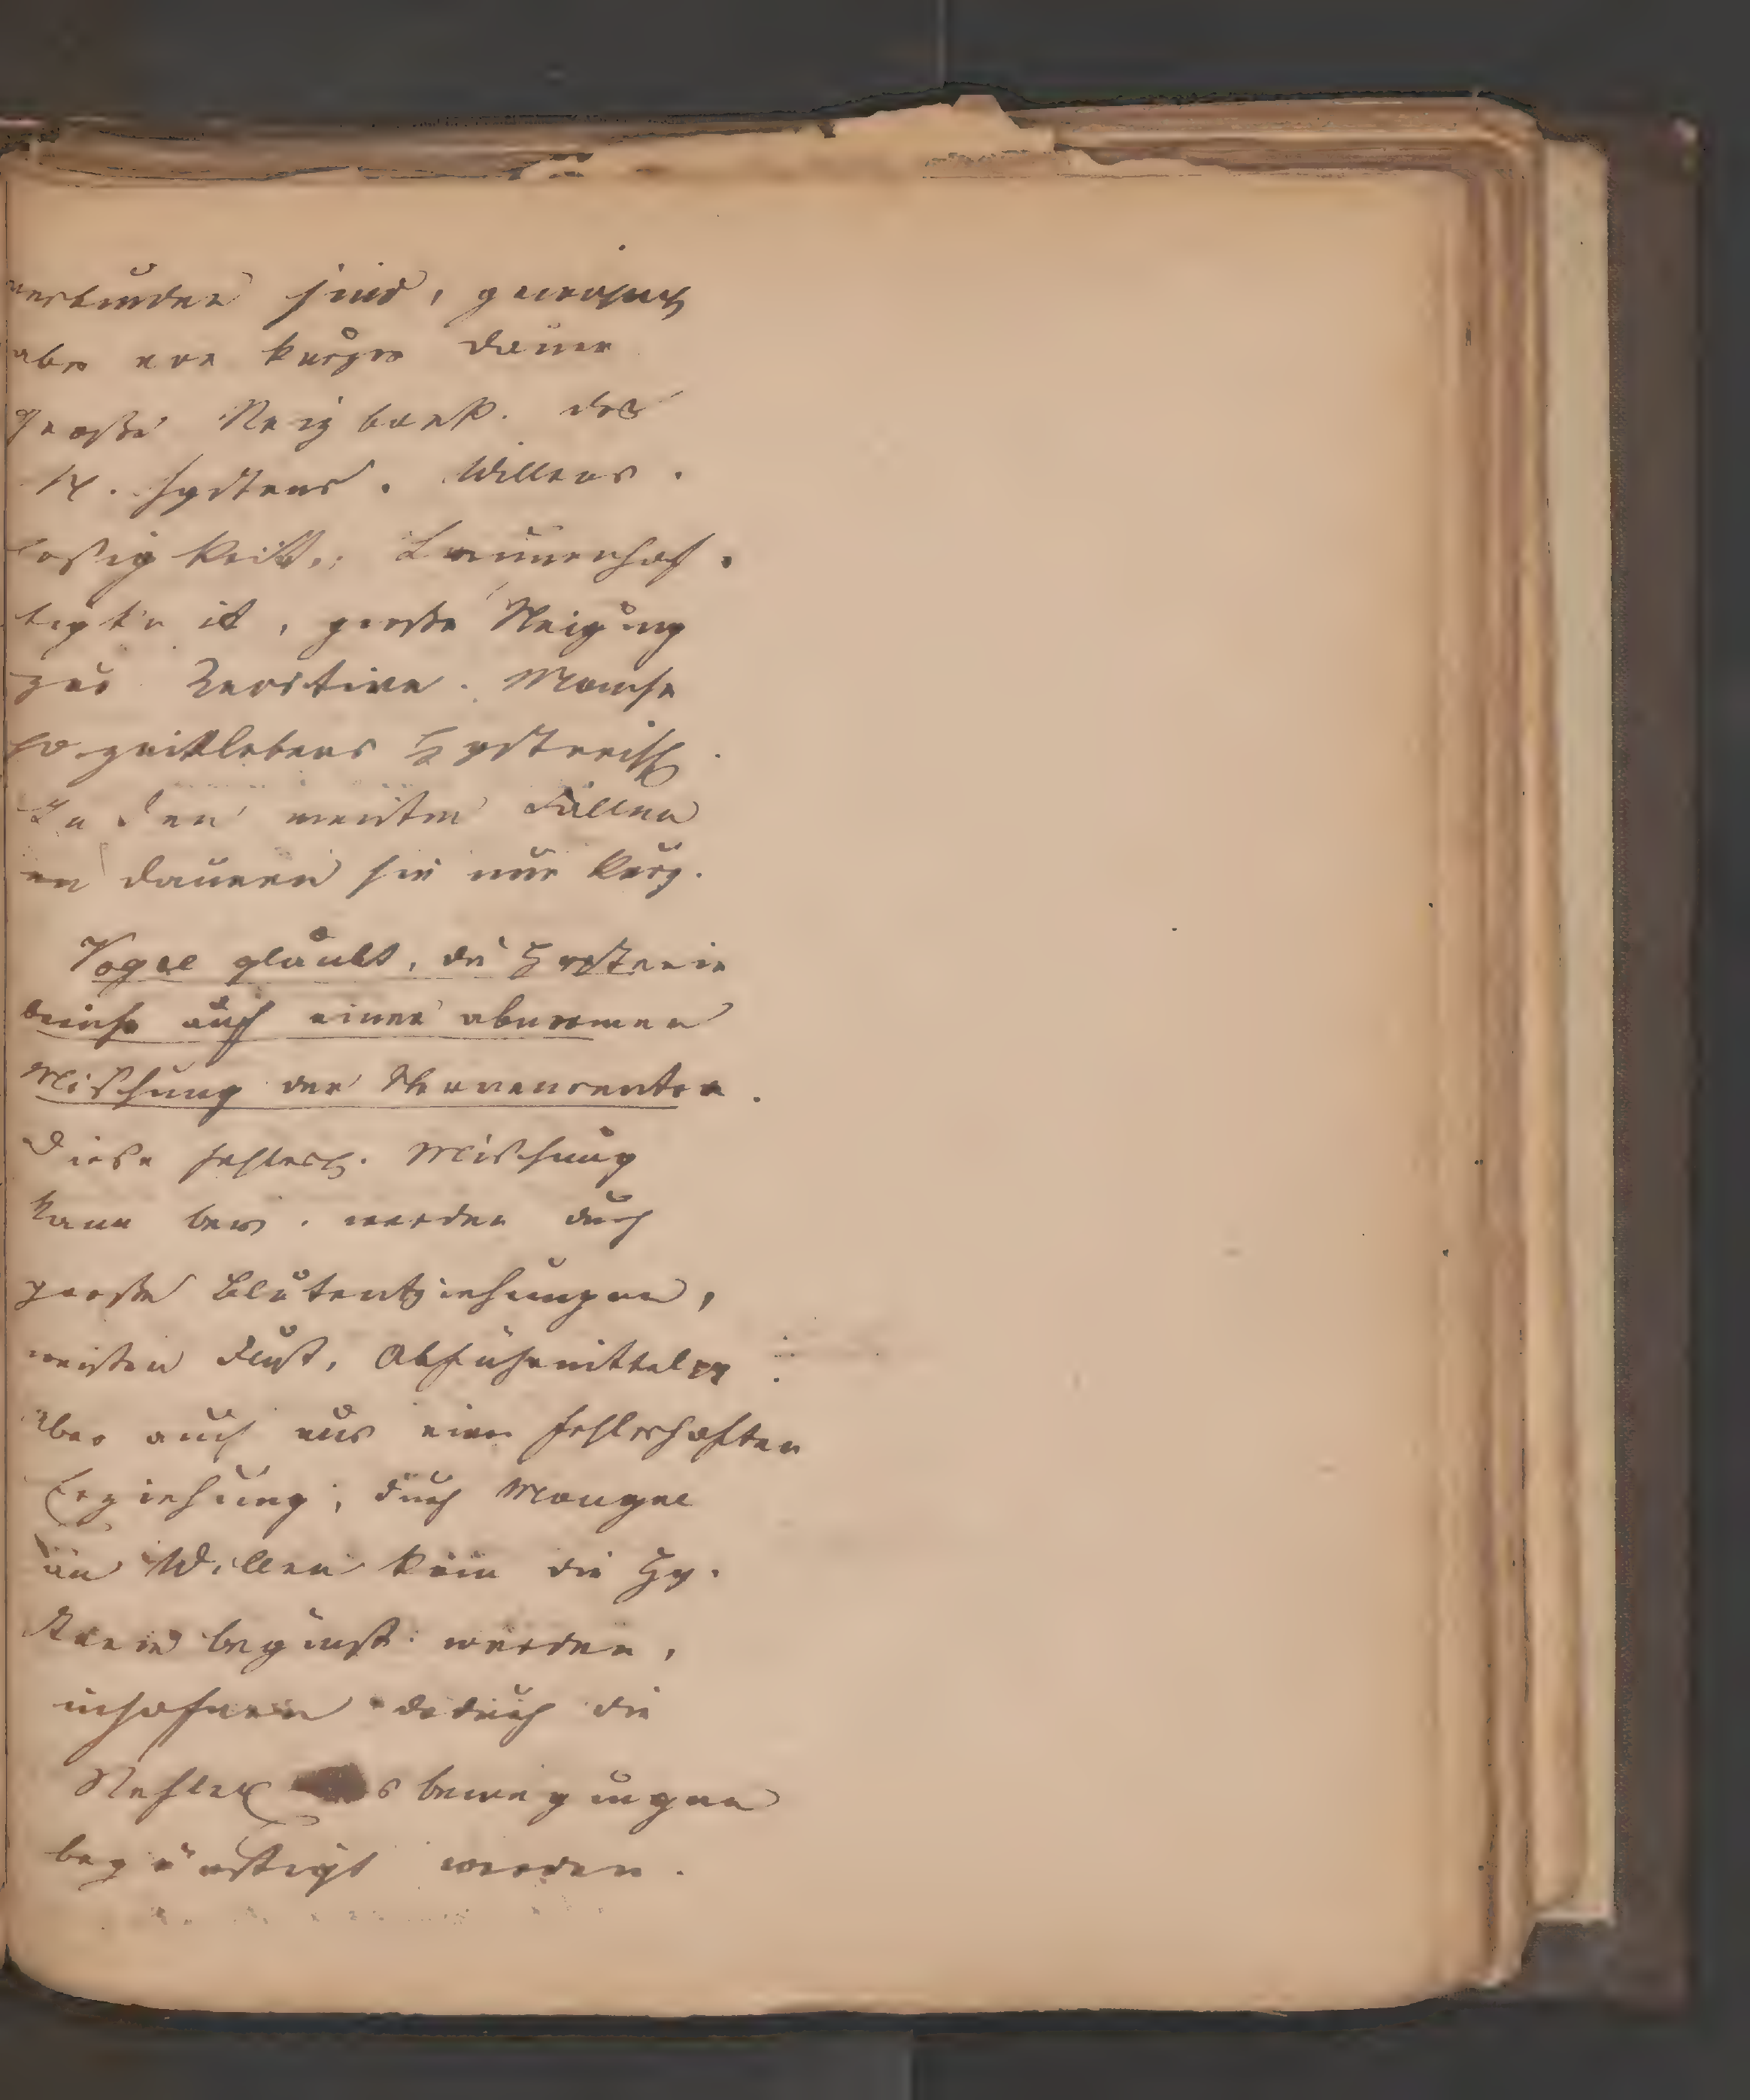 verbunden sind, gewöhnlich
aber von kurzer Dauer
Große Reizbark. des
N. Systems. Willens.
losigkeit, Launenhaf.
tigkeit, große Neigung
zur
so zeitlebens Hysterisch.
In den meisten Fällen
dauern sie nur kurz.
Vogel glaubt, die Hysterie
beruhe auf einer abnormen
Mischung der Nervencentra.
Diese fehlerh. Mischung
kann bew. werden durch
große Blutentziehungen,
weißen Fluß, Abführmittel
aber auch aus einer fehlerhaften
Erziehung, durch Mangel
an Willen kann die Hy.
sterie begünst. werden,
insofern dadurch die
Reflex s bewegungen
begünstigt werden.